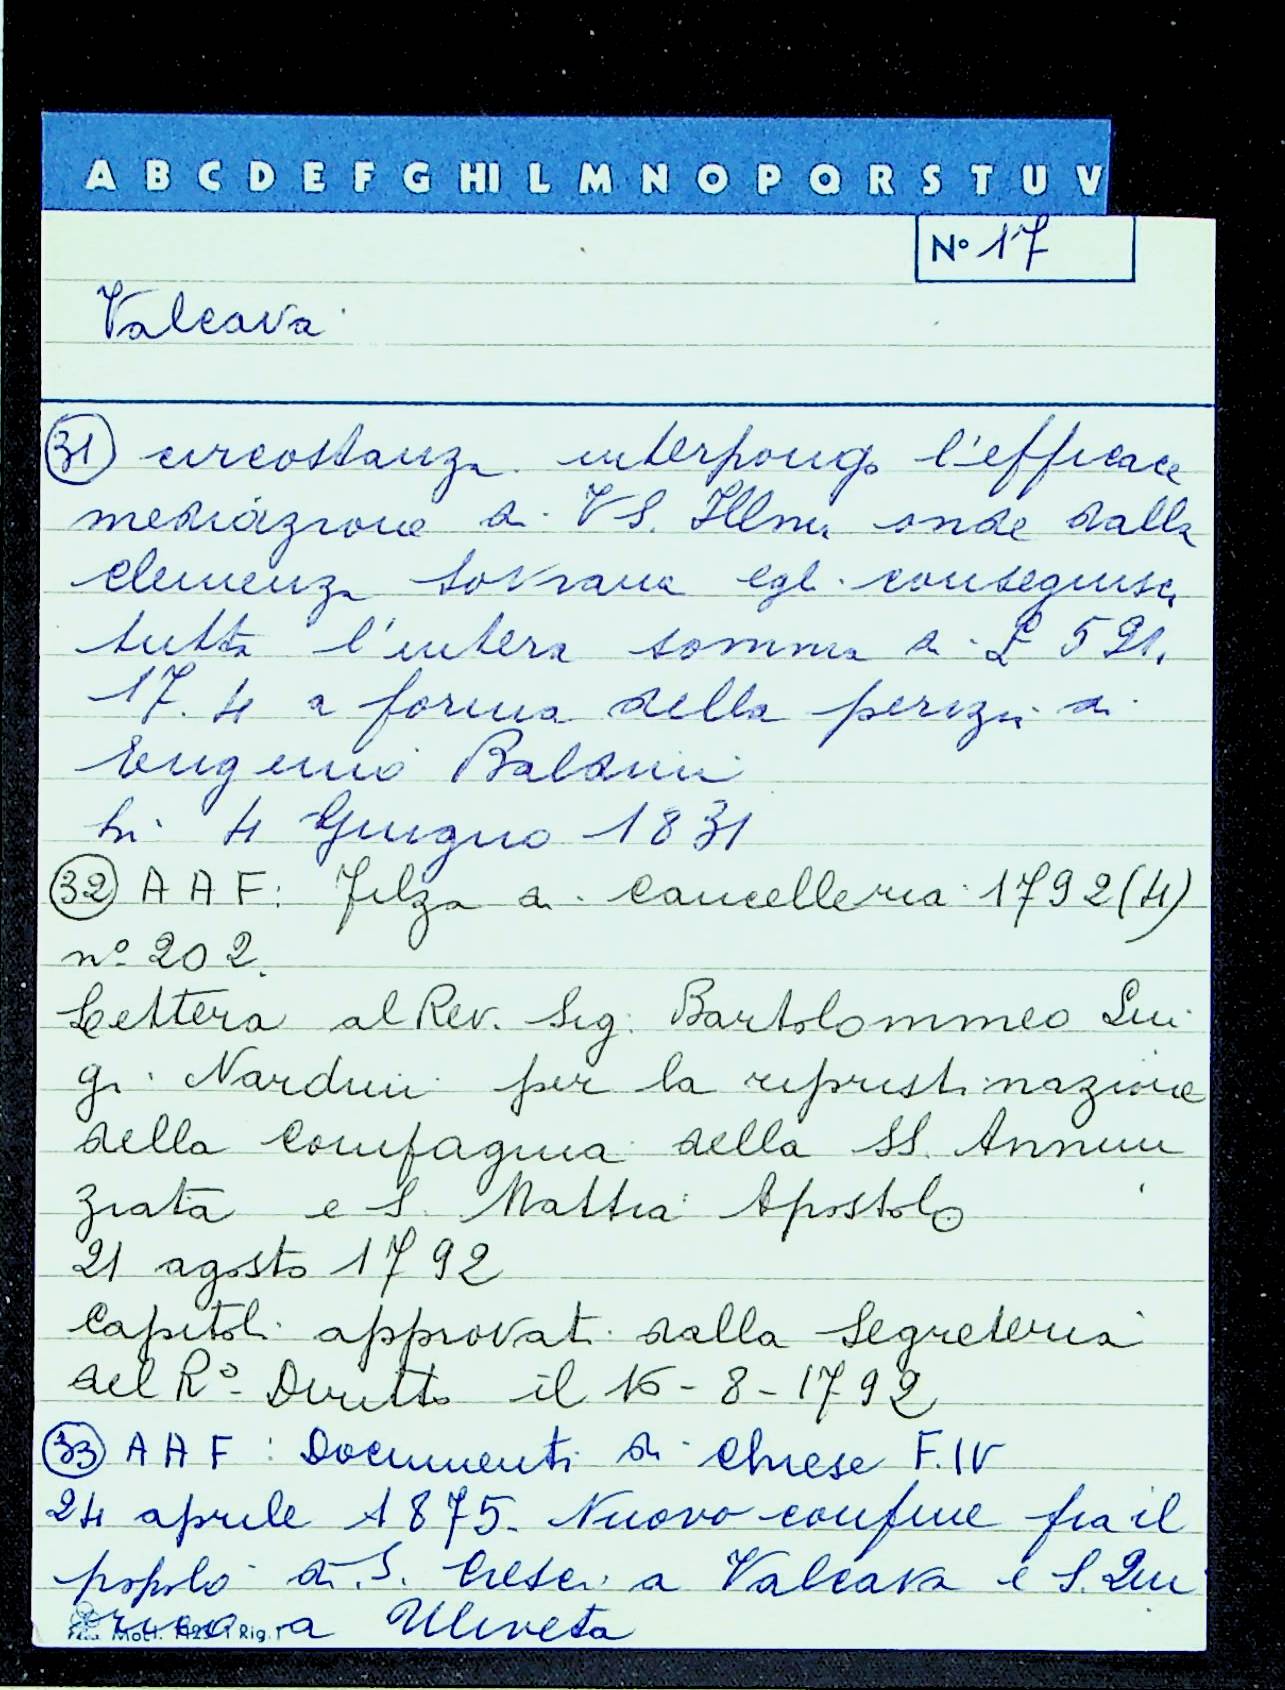 A B C D E F G HI L M N O P Q R S T U V
N° 17
Valcava
31 circostanza interpongo l'efficace
mediazione di VS. Illma onde dalla
clemenza sovrana egli conseguisca
tutta l'intera somma di £ 591.
17. 4 a forma della perizia di
Eugenio Baldini
li 4 Giugno 1831
32 A A F: Filza di Cancelleria 1792 (4)
n° 202.
Lettera al Rev. Sig. Bartolommeo Lui
gi Narduii per la ripristinazione
della Compagnia della SS. Annun
ziata e S. Mattia Apostolo
21 agosto 1792
Capitoli approvati dalla Segreteria
del R° Diritto il 16 - 8 - 1792
33 A A F: Documenti di Chiese F. IV
24 aprile 1875. Nuovo confine fra il
popolo di S. Cresci a Valcava e S. Qui
rico a Uliveta